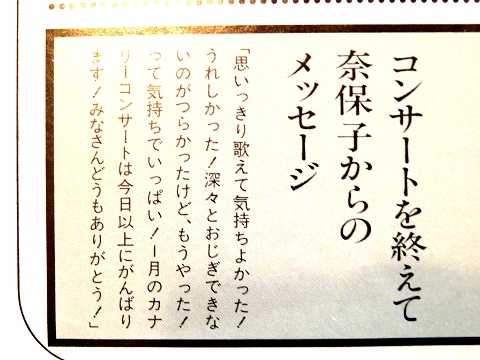 コンサートを終えて
奈保子からの
メッセージ
「思いっきり歌えて気持ちよかった！
うれしかった！深々とおじぎできな
いのがつらかったけど、もうやった！
って気持ちでいっぱい！1月のカナ
リーコンサートは今日以上にがんばり
ます！みなさんどうもありがとう！」